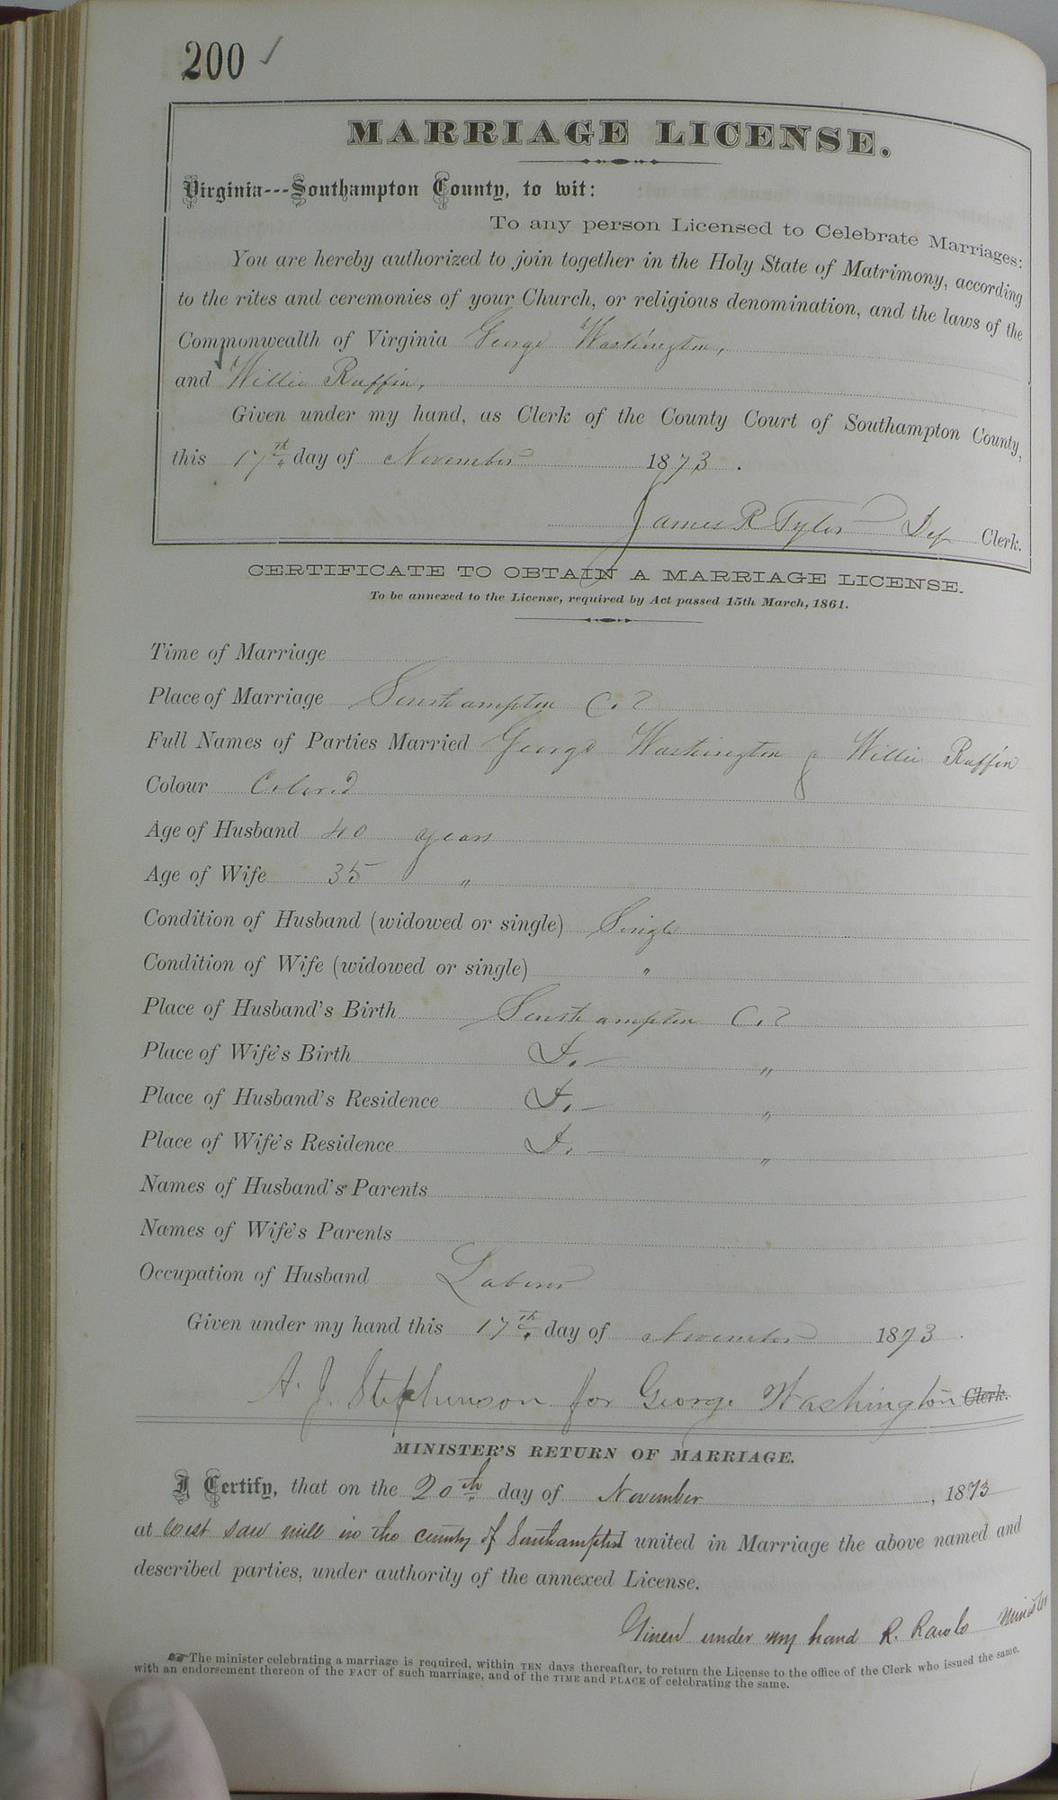 200 ✓
MARRIAGE LICENSE.
Virginia---Southampton County, to wit:
To any person Licensed to Celebrate Marriages:
You are hereby authorized to join together in the Holy State of Matrimony, according
to the rites and ceremonies of your Church, or religious denomination, and the laws of the
Commonwealth of Virginia George Washington,
and Willie Ruffin,
Given under my hand, as Clerk of the County Court of Southampton County,
this 17th day of November 1873.
James R Tyler Dep Clerk.
CERTIFICATE TO OBTAIN A MARRIAGE LICENSE.
To be annexed to the License, required by Act passed 15th March, 1861.
Time of Marriage
Place of Marriage Southampton Co
Full Names of Parties Married George Washington & Willie Ruffin
Colour Colored
Age of Husband 40 years
Age of Wife 35 "
Condition of Husband (widowed or single) Single
Condition of Wife (widowed or single) "
Place of Husband's Birth Southampton Co
Place of Wife's Birth Do - "
Place of Husband's Residence Do - "
Place of Wife's Residence Do - "
Names of Husband's Parents
Names of Wife's Parents
Occupation of Husband Laborer
Given under my hand this 17th day of November 1873.
A. J. Stephenson for George Washington Clerk.
MINISTER'S RETURN OF MARRIAGE.
I Certify, that on the 20th day of November, 1873
at West saw mill in the county of Southampton united in Marriage the above named and
described parties, under authority of the annexed License.
Given under my hand R. Minister
The minister celebrating a marriage is required, within TEN days thereafter, to return the License to the office of the Clerk who issued the same,
with an endorsement thereon of the FACT of such marriage, and of the TIME and PLACE of celebrating the same.